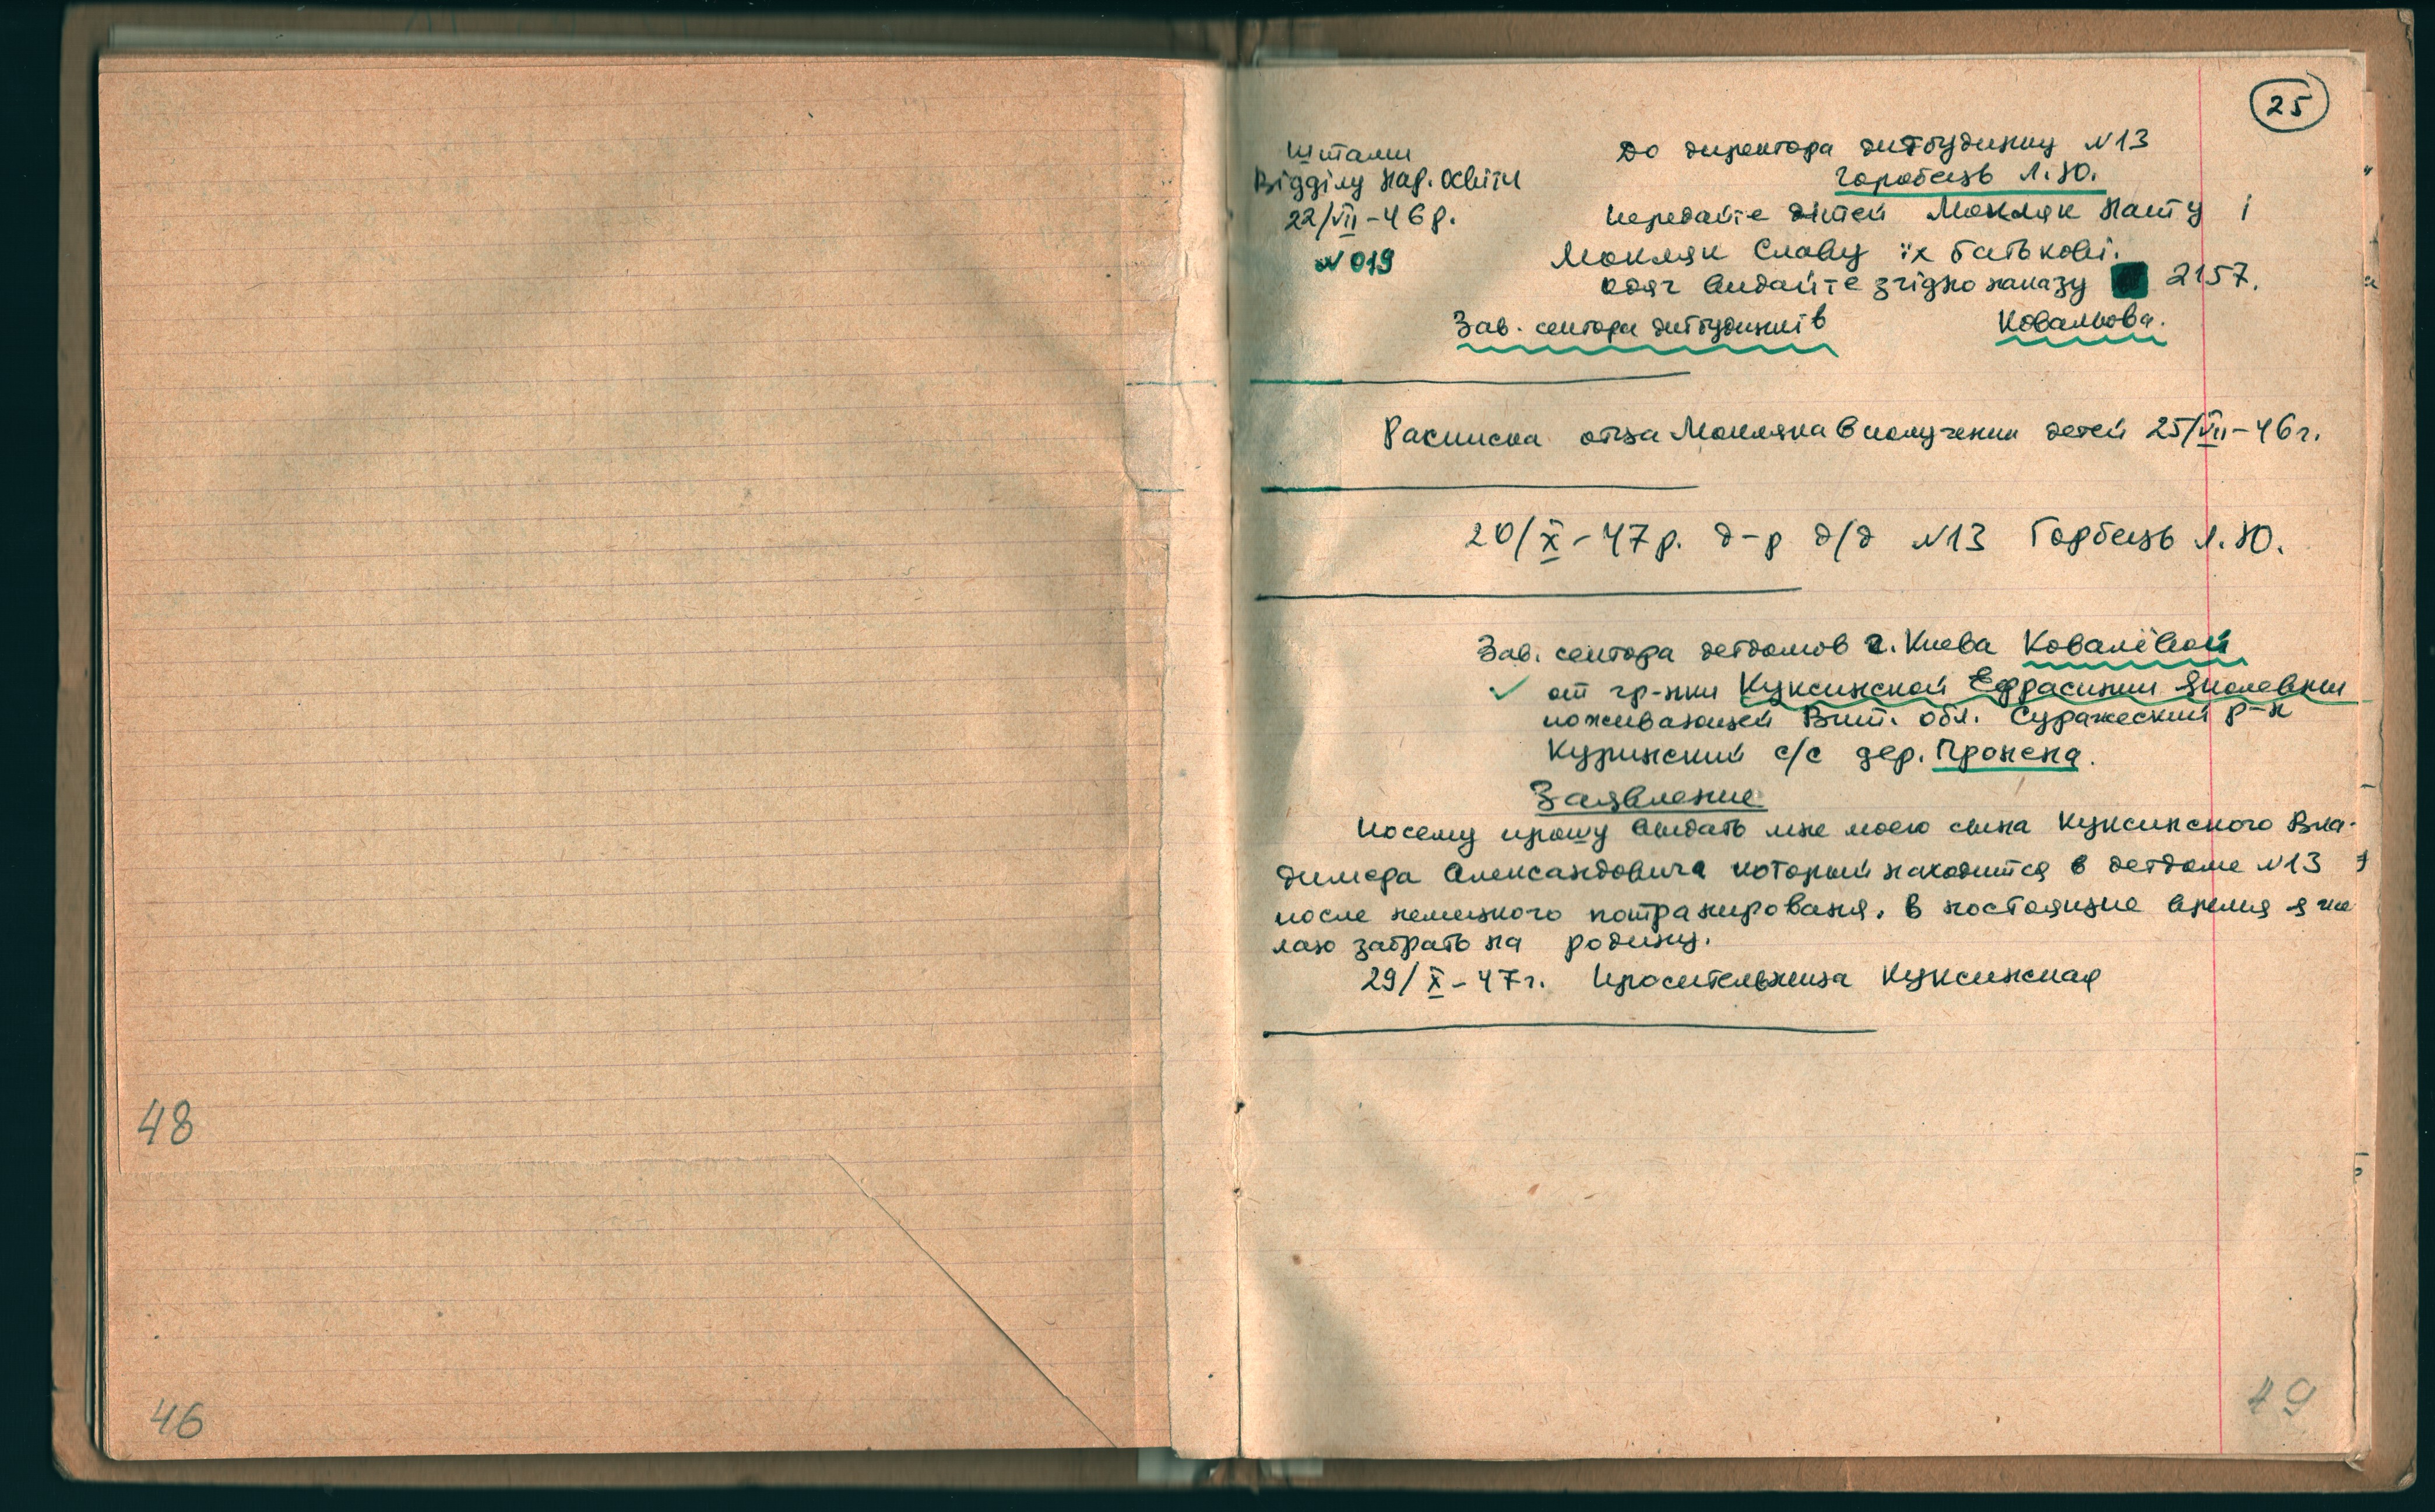 48
46
25
Штамп
Відділу нар. освіти
22/VII-46 р.
N 019
До директора дитбудинку N13
Горобець Л.Ю.
Передайте дітей Мокляк Нату і
Мокляк Славу їх батькові.
одяг видайте згідно наказу 2157.
Зав. сектора дитбудинків Ковальова.
Расписка отца Мокляка в получении детей 25/VII-46 г.
20/X-47 р. д-р д/д N13 Горбець Л.Ю.
Зав. сектора детдомов г. Киева Ковалёвой
✓ от гр-нки Куксинской Ефрасинии Яколевны
поживающей Вит. обл. Суражеский р-н
Куринский с/с дер. Пронена.
Заявление
Посему прошу выдать мне моего сына Куксинского Вла-
димера Александовича который находится в детдоме N13
после немецкого потранированя. В ностоящие время я же
лаю забрать на родину.
29/X-47 г. Просительница Куксинская
49